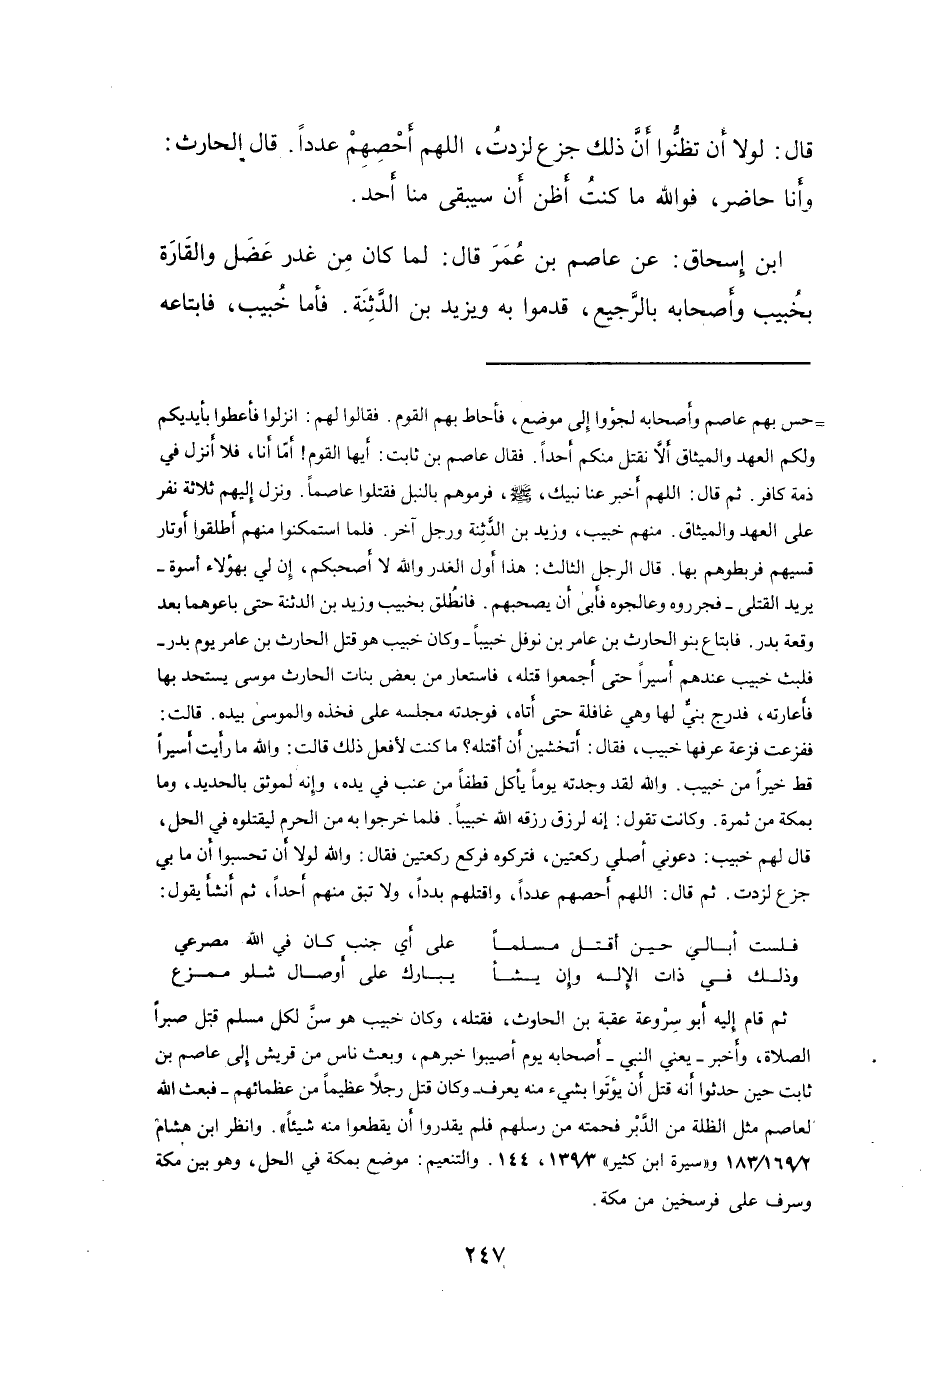 قال: لولا أن تظنُّوا أنَّ ذلك جزع لزدتُ، اللهم أَحْصِهِمْ عدداً. قال الحارث:
وأنا حاضر، فوالله ما كنتُ أظن أن سيبقى منا أحد.
ابن إسحاق: عن عاصم بن عُمَرَ قال: لما كان مِن غدر عَضَل والقَارَة
بخُبيب وأصحابه بالرَّجيع، قدموا به ويزيد بن الدَّثِنَة. فأما خُبيب، فابتاعه
=حس بهم عاصم وأصحابه لجؤوا إلى موضع، فأحاط بهم القوم. فقالوا لهم: انزلوا فأعطوا بأيديكم
ولكم العهد والميثاق ألاَّ نقتل منكم أحداً. فقال عاصم بن ثابت: أيها القوم! أمّا أنا، فلا أنزل في
ذمة كافر. ثم قال: اللهم أخبر عنا نبيك، ﷺ، فرموهم بالنبل فقتلوا عاصماً. ونزل إليهم ثلاثة نفر
على العهد والميثاق. منهم خبيب، وزيد بن الدَّثِنة ورجل آخر. فلما استمكنوا منهم أطلقوا أوتار
قسيهم فربطوهم بها. قال الرجل الثالث: هذا أول الغدر والله لا أصحبكم، إن لي بهؤلاء أسوة -
يريد القتلى - فجرروه وعالجوه فأبىٰ أن يصحبهم. فانطُلق بخبيب وزيد بن الدثنة حتى باعوهما بعد
وقعة بدر. فابتاع بنو الحارث بن عامر بن نوفل خبيباً - وكان خبيب هو قتل الحارث بن عامر يوم بدر-
فلبث خبيب عندهم أسيراً حتى أجمعوا قتله، فاستعار من بعض بنات الحارث موسى يستحد بها
فأعارته، فدرج بنيٌّ لها وهي غافلة حتى أتاه، فوجدته مجلسه على فخذه والموسىٰ بيده. قالت:
ففزعت فزعة عرفها خبيب، فقال: أتخشين أن أقتله؟ ما كنت لأفعل ذلك قالت: والله ما رأيت أسيراً
قط خيراً من خبيب. والله لقد وجدته يوماً يأكل قطفاً من عنب في يده، وإنه لموثق بالحديد، وما
بمكة من ثمرة. وكانت تقول: إنه لرزق رزقه الله خبيباً. فلما خرجوا به من الحرم ليقتلوه في الحل،
قال لهم خبيب: دعوني أصلي ركعتين، فتركوه فركع ركعتين فقال: والله لولا أن تحسبوا أن ما بي
جزع لزدت. ثم قال: اللهم أحصهم عدداً، واقتلهم بدداً، ولا تبق منهم أحداً، ثم أنشأ يقول:
فلست أبالي حين أقتل مسلماً على أي جنب كان في الله مصرعي
وذلك في ذات الإله وإن يشأ يبارك على أوصال شلو ممزع
ثم قام إليه أبو سِرْوعة عقبة بن الحاوث، فقتله، وكان خبيب هو سنَّ لكل مسلم قتل صبراً
الصلاة، وأخبر - يعني النبي - أصحابه يوم أصيبوا خبرهم، وبعث ناس من قريش إلى عاصم بن
ثابت حين حدثوا أنه قتل أن يؤتوا بشيء منه يعرف- وكان قتل رجلاً عظيماً من عظمائهم - فبعث الله
لعاصم مثل الظلة من الدَّبْر فحمته من رسلهم فلم يقدروا أن يقطعوا منه شيئاً». وانظر ابن هشام
١٨٣/١٦٩/٢ و«سيرة ابن كثير» ١٣٩/٣، ١٤٤. والتنعيم: موضع بمكة في الحل، وهو بين مكة
وسرف على فرسخين من مكة.
٢٤٧